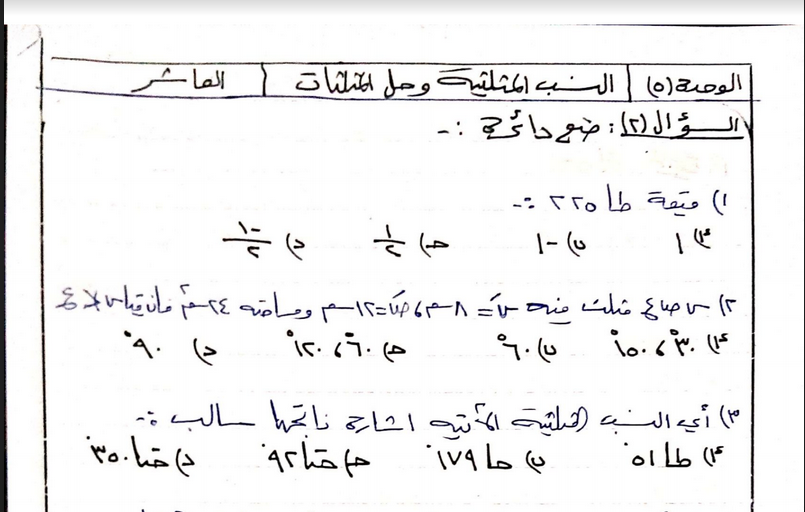 الوحدة (٥) | النسب المثلثية وحل المثلثات | العاشر
السؤال (٢): ضع دائرة :-
١) قيمة ظا ٢٢٥ :-
أ) ١ ب) -١ جـ) ١/٢ د) -١/٢
٢) س ص ع مثلث فيه سَ = ٨سم، صَ = ١٢سم ومساحته ٢٤سم٢ فإن قياس > ع
أ) ٣٠°، ١٥٠° ب) ٦٠° جـ) ٦٠°، ١٢٠° د) ٩٠°
٣) أي النسب المثلثية الآتية اشارة ناتجها سالب :-
أ) ظا ٥١° ب) جا ١٧٩° جـ) جتا ٩٢° د) جتا ٣٥٠°